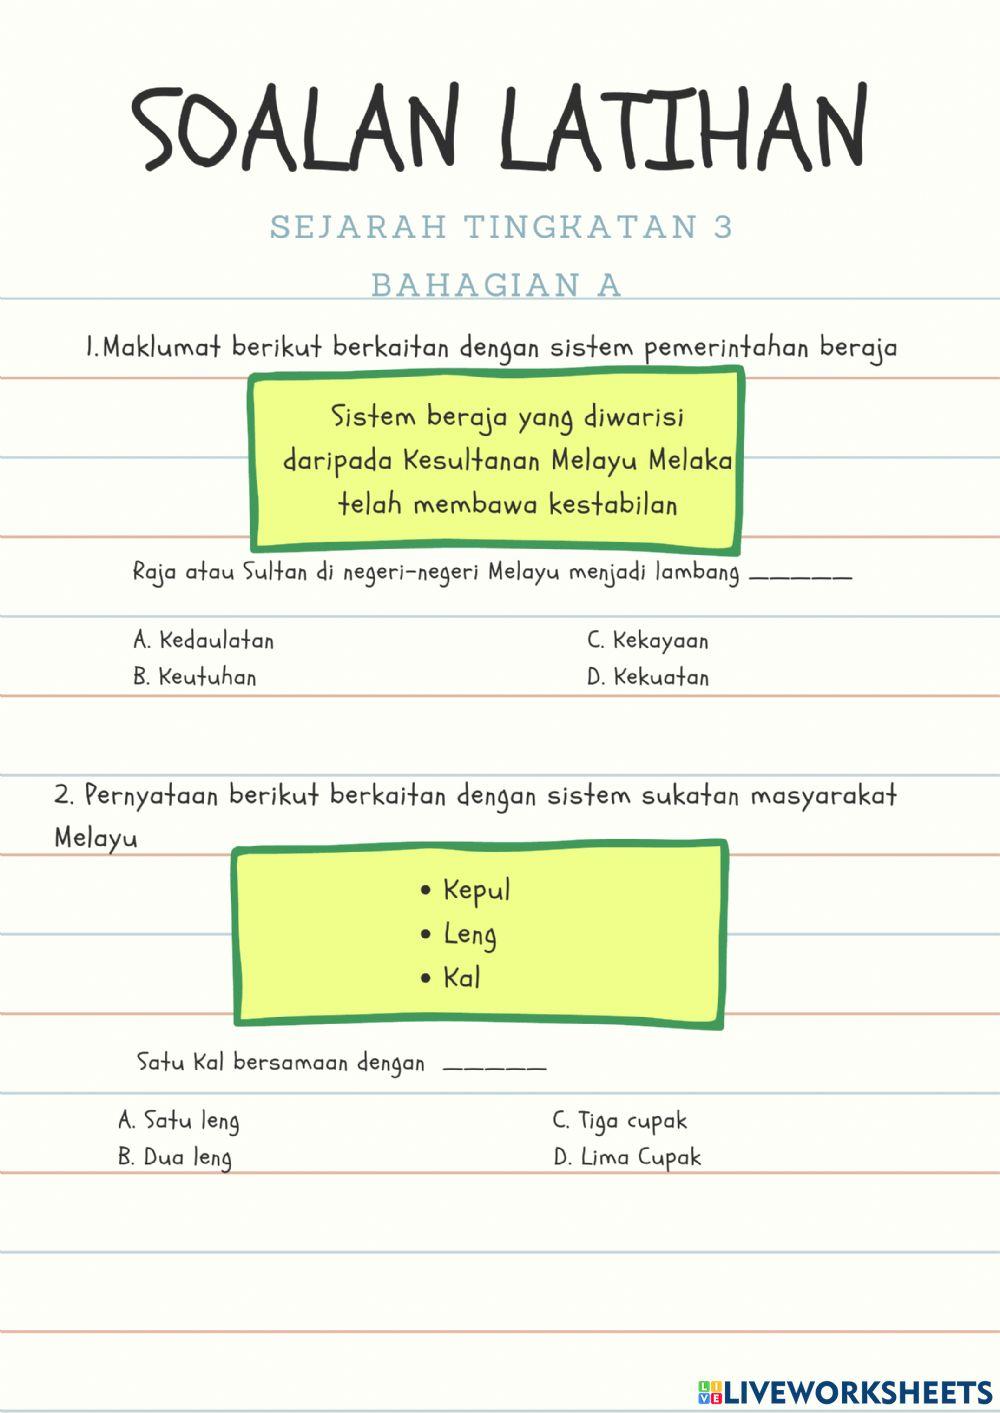 SOALAN LATIHAN
SEJARAH TINGKATAN 3
BAHAGIAN A
1.Maklumat berikut berkaitan dengan sistem pemerintahan beraja
Sistem beraja yang diwarisi
daripada Kesultanan Melayu Melaka
telah membawa kestabilan
Raja atau Sultan di negeri-negeri Melayu menjadi lambang ______
A. Kedaulatan
B. Keutuhan
C. Kekayaan
D. Kekuatan
2. Pernyataan berikut berkaitan dengan sistem sukatan masyarakat
Melayu
• Kepul
• Leng
• Kal
Satu Kal bersamaan dengan ______
A. Satu leng
B. Dua leng
C. Tiga cupak
D. Lima Cupak
LIVE LIVEWORKSHEETS